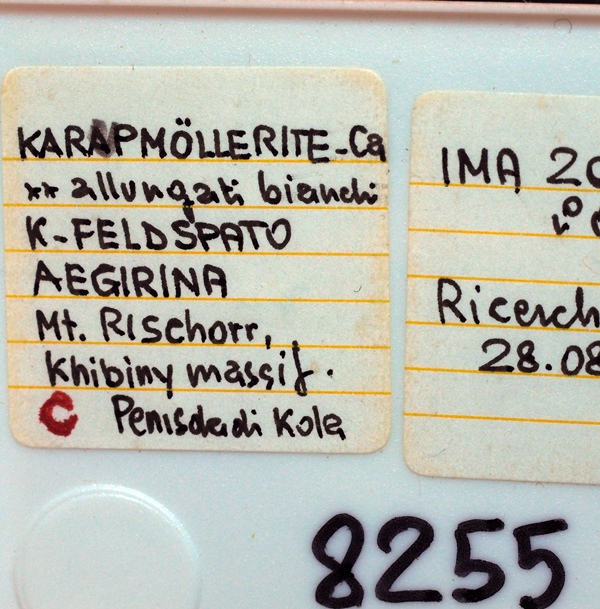 KARAPMÖLLERITE-Ca
** allungati bianchi
K-FELDSPATO
AEGIRINA
Mt. Rischorr,
Khibiny massif.
C Penisola di Kola
IMA 20
Ricerch
28.08
8255